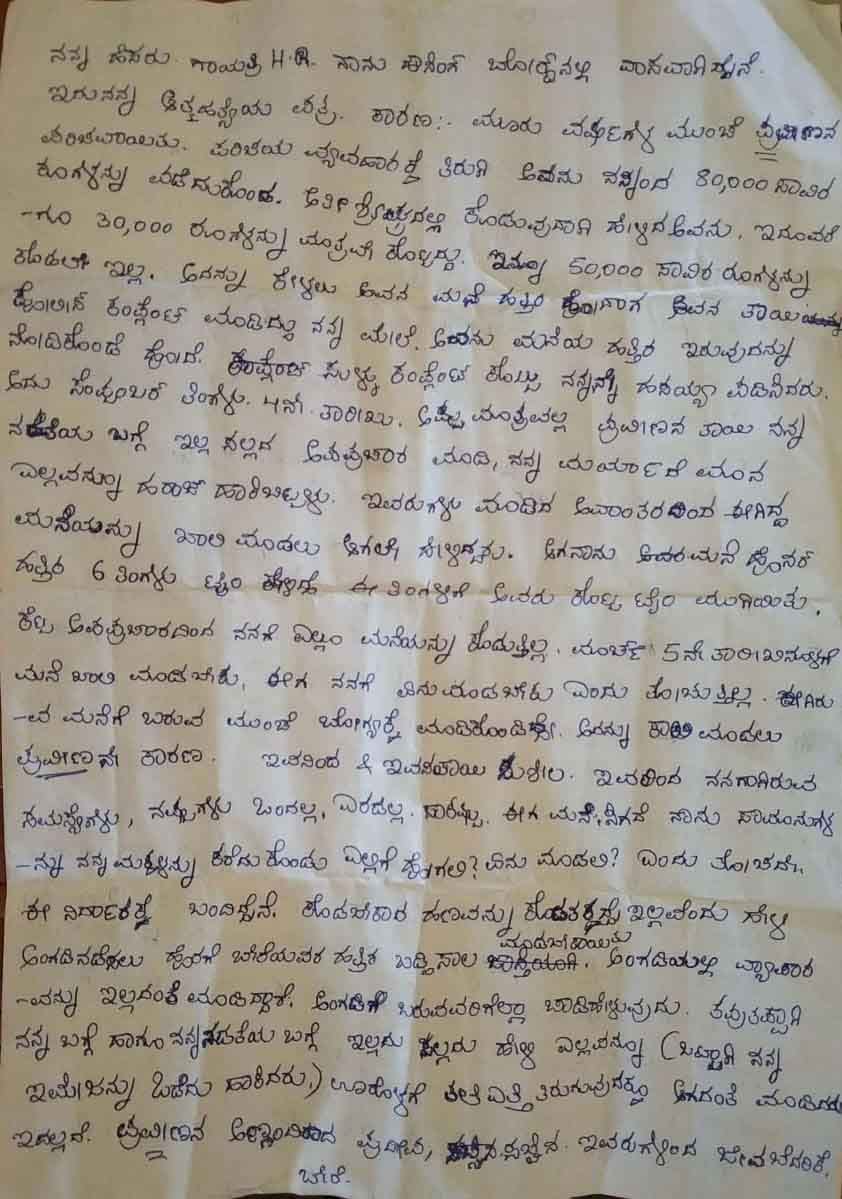 ನನ್ನ ಹೆಸರು. ಗಾಯತ್ರಿ H.R. ನಾನು ಹೌಸಿಂಗ್ ಬೋರ್ಡ್‌ನಲ್ಲಿ ವಾಸವಾಗಿದ್ದೇನೆ.
ಇದು ನನ್ನ ಆತ್ಮಹತ್ಯೆಯ ಪತ್ರ. ಕಾರಣ:. ಮೂರು ವರ್ಷಗಳ ಮುಂಚೆ ಪ್ರವೀಣನ
ಪರಿಚಯಾಯಿತು. ಪರಿಚಯ ವ್ಯಾವಹಾರಕ್ಕೆ ತಿರುಗಿ ಅವನು ನನ್ನಿಂದ 80,000 ಸಾವಿರ
ರೂಗಳನ್ನು ಪಡೆದುಕೊಂಡ. ಅತೀ ಶ್ರೀಘ್ರದಲ್ಲಿ ಕೊಡುವುದಾಗಿ ಹೇಳಿದ ಅವನು. ಇದುವರೆ
-ಗೂ 30,000 ರೂಗಳನ್ನು ಮಾತ್ರವೇ ಕೊಟ್ಟಿದ್ದು. ಇನ್ನೂ 50,000 ಸಾವಿರ ರೂಗಳನ್ನು
ಕೊಡಲೇ ಇಲ್ಲ. ಅದನ್ನು ಕೇಳಲು ಅವನ ಮನೆ ಹತ್ತಿರ ಹೋದಾಗ ಅವನ ತಾಯಿ
ಪೋಲಿಸ್ ಕಂಪ್ಲೆಂಟ್ ಮಾಡಿದ್ದು ನನ್ನ ಮೇಲೆ. ಅವನು ಮನೆಯ ಹತ್ತಿರ ಇರುವುದನ್ನು
ನೋಡಿಕೊಂಡೆ ಹೋದೆ. ಸುಳ್ಳು ಕಂಪ್ಲೆಂಟ್ ಕೊಟ್ಟು ನನ್ನನ್ನೆ ಪಡಿಸಿದರು.
ಅದು ಸೆಪ್ಟೆಂಬರ್ ತಿಂಗಳು. 4ನೇ ತಾರೀಖು. ಅಷ್ಟು ಮಾತ್ರವಲ್ಲ ಪ್ರವೀಣನ ತಾಯಿ ನನ್ನ
ನಡತೆಯ ಬಗ್ಗೆ ಇಲ್ಲ ಸಲ್ಲದ ಅಪಪ್ರಚಾರ ಮಾಡಿ, ನನ್ನ ಮರ್ಯಾದೆ ಮಾನ
ಎಲ್ಲವನ್ನೂ ಹರಾಜ್ ಹಾಕಿಬಿಟ್ಟಳು. ಇವರುಗಳು ಮಾಡಿದ ಅವಾಂತರದಿಂದ ಈಗಿದ್ದ
ಮನೆಯನ್ನು ಖಾಲಿ ಮಾಡಲು ಆಗಲೇ ಹೇಳಿದ್ದರು. ಆಗ ನಾನು ಅವರ ಮನೆ ಓನರ್
ಹತ್ತಿರ 6 ತಿಂಗಳು ಟೈಂ ಕೇಳಿದ್ದೆ ಈ ತಿಂಗಳಿಗೆ ಅವರು ಕೊಟ್ಟ ಟೈಂ ಮುಗಿಯಿತು.
ಕೆಟ್ಟ ಅಪಪ್ರಚಾರದಿಂದ ನನಗೆ ಎಲ್ಲೂ ಮನೆಯನ್ನು ಕೊಡುತ್ತಿಲ್ಲ. ಮಾರ್ಚ್ 5ನೇ ತಾರೀಖಿನೊಳಗೆ
ಮನೆ ಖಾಲಿ ಮಾಡಬೇಕು, ಈಗ ನನಗೆ ಏನು ಮಾಡಬೇಕು ಎಂದು ತೋಚುತ್ತಿಲ್ಲ. ಈಗಿರು
-ವ ಮನೆಗೆ ಬರುವ ಮುಂಚೆ ಬೋಗ್ಯಕ್ಕೆ ಮಾಡಿಕೊಂಡಿದ್ದೇ. ಅದನ್ನು ಖಾಲಿ ಮಾಡಲು
ಪ್ರವೀಣನೇ ಕಾರಣ. ಇವನಿಂದ & ಇವನತಾಯಿ ಸುಶೀಲ. ಇವರಿಂದ ನನಗಾಗಿರುವ
ಸಮಸ್ಯೆಗಳು, ನಷ್ಟಗಳು ಒಂದಲ್ಲ, ಎರಡಲ್ಲ. ಸಾಕಷ್ಟು. ಈಗ ಮನೆ ಸಿಗದೆ ನಾನು ಸಾಮಾನುಗಳ
-ನ್ನು ನನ್ನ ಮಕ್ಕಳನ್ನು ಕರೆದುಕೊಂಡು ಎಲ್ಲಿಗೆ ಹೋಗಲಿ? ಏನು ಮಾಡಲಿ? ಎಂದು ತೋಚದೇ.
ಈ ನಿರ್ದಾರಕ್ಕೆ ಬಂದಿದ್ದೇನೆ. ಕೊಡಬೇಕಾದ ಹಣವನ್ನು ಇಲ್ಲವೆಂದು ಹೇಳಿ
ಅಂಗಡಿನಡೆಸಲು ಹೊರಗೆ ಬೇರೆಯವರ ಹತ್ತಿರ ಬಡ್ಡಿ ಸಾಲ ಮಾಡಬೇಕಾಯಿತು. ಅಂಗಡಿಯಲ್ಲಿ ವ್ಯಾಪಾರ
-ವನ್ನು ಇಲ್ಲದಂತೆ ಮಾಡಿದ್ದಾರೆ. ಅಂಗಡಿಗೆ ಬರುವವರಿಗೆಲ್ಲಾ ಚಾಡಿಹೇಳುವುದು. ತಪ್ಪುತಪ್ಪಾಗಿ
ನನ್ನ ಬಗ್ಗೆ ಹಾಗೂ ನನ್ನ ನಡತೆಯ ಬಗ್ಗೆ ಇಲ್ಲದು ಸಲ್ಲದು ಹೇಳಿ ಎಲ್ಲವನ್ನೂ (ಒಟ್ಟಾಗಿ ನನ್ನ
ಇಮೇಜನ್ನು ಒಡೆದು ಹಾಕಿದರು,) ಊರೊಳಗೆ ತಲೆ ಎತ್ತಿ ತಿರುಗುವುದಕ್ಕೂ ಆಗದಂತೆ ಮಾಡಿದರು
ಇದಲ್ಲದೆ. ಪ್ರವೀಣನ ಅಣ್ಣಂದಿರಾದ ಪ್ರದೀಪ, ಇವರುಗಳಿಂದ ಜೀವಬೆದರಿಕೆ.
ಬೇರೆ.